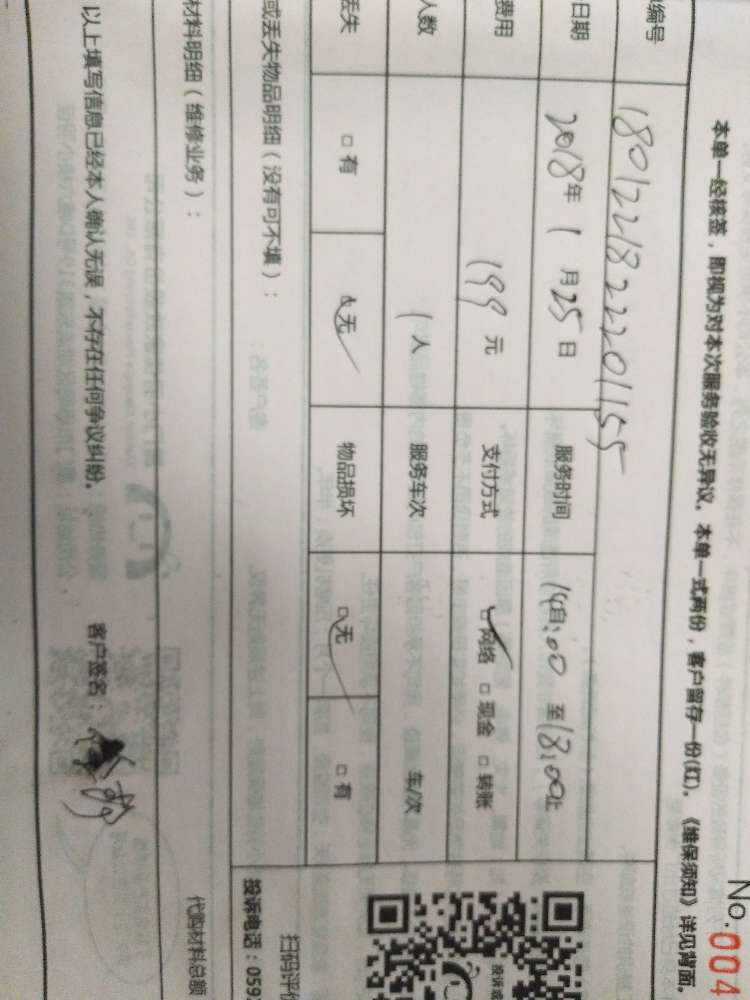 No.004
本单一经核签，即视为对本次服务验收无异议。本单一式两份，客户留存一份(红)。《维保须知》详见背面。
编号 1801221822201155
日期 2018年1月25日 服务时间 自14:00至18:00止
费用 199元 支付方式 ☑网络 □现金 □转账
人数 1人 服务车次 车/次
丢失 □有 ☑无 物品损坏 ☑无 □有
或丢失物品明细（没有可不填）：
材料明细（维修业务）：
代购材料总额
以上填写信息已经本人确认无误，不存在任何争议纠纷。 客户签名：
投诉或
扫码评价
投诉电话：059